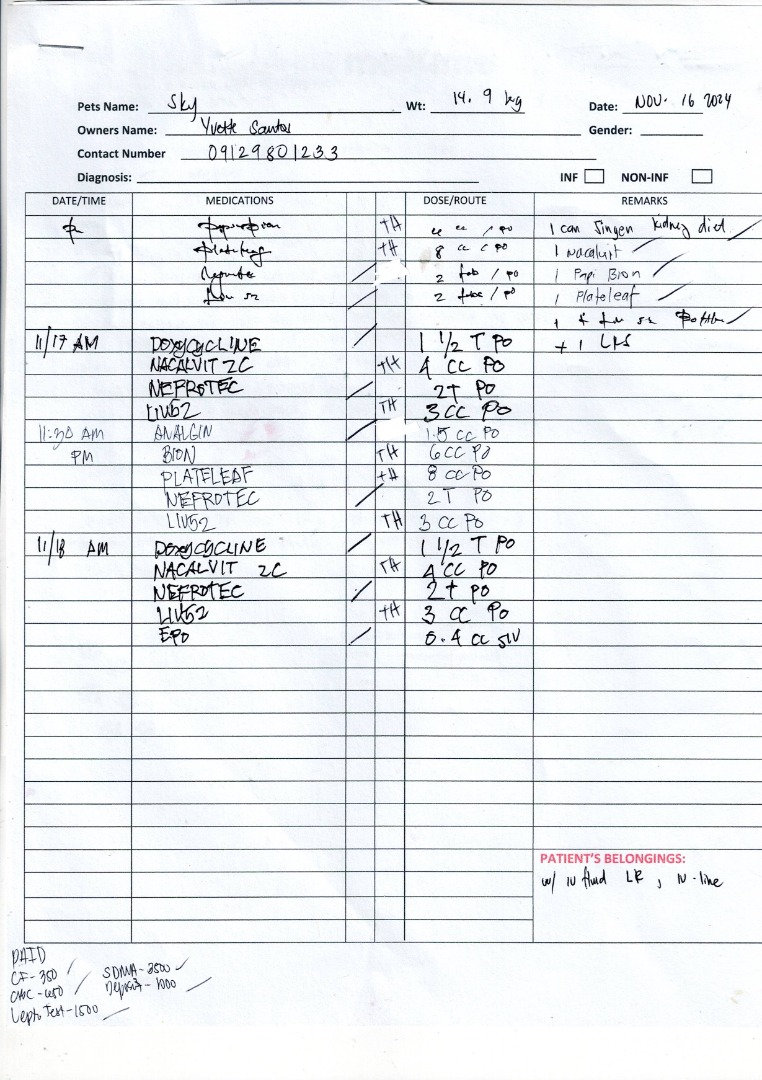 Pets Name: Sky Wt: 14.9 kg Date: NOV. 16 2024
Owners Name: Yvette Santos Gender:
Contact Number 09129801233
Diagnosis: INF NON-INF
DATE/TIME MEDICATIONS DOSE/ROUTE REMARKS
TH cc / po 1 can kidney diet
TH 8 cc / po 1 Nacalvit
2 tab / po 1 Papi Bion
2 / po 1 Plateleaf
11/17 AM DOXYCYCLINE 1 1/2 T PO + 1 LRS
NACALVIT 2C TH 4 cc PO
NEFROTEC 2T PO
LIV52 TH 3 CC PO
11:30 AM ANALGIN 1.5 CC PO
PM BION TH 6 CC PO
PLATELEAF TH 8 CC PO
NEFROTEC 2T PO
LIV52 TH 3 CC PO
11/18 AM DOXYCYCLINE 1 1/2 T PO
NACALVIT 2C TH 4 CC PO
NEFROTEC 2T PO
LIV52 TH 3 CC PO
EPO 0.4 CC SIV
PATIENT'S BELONGINGS:
w/ IV fluid LR, IV-line
PAID
CF-350 SDMA-3500
CBC-650 Deposit-1000
Lepto Test-1500